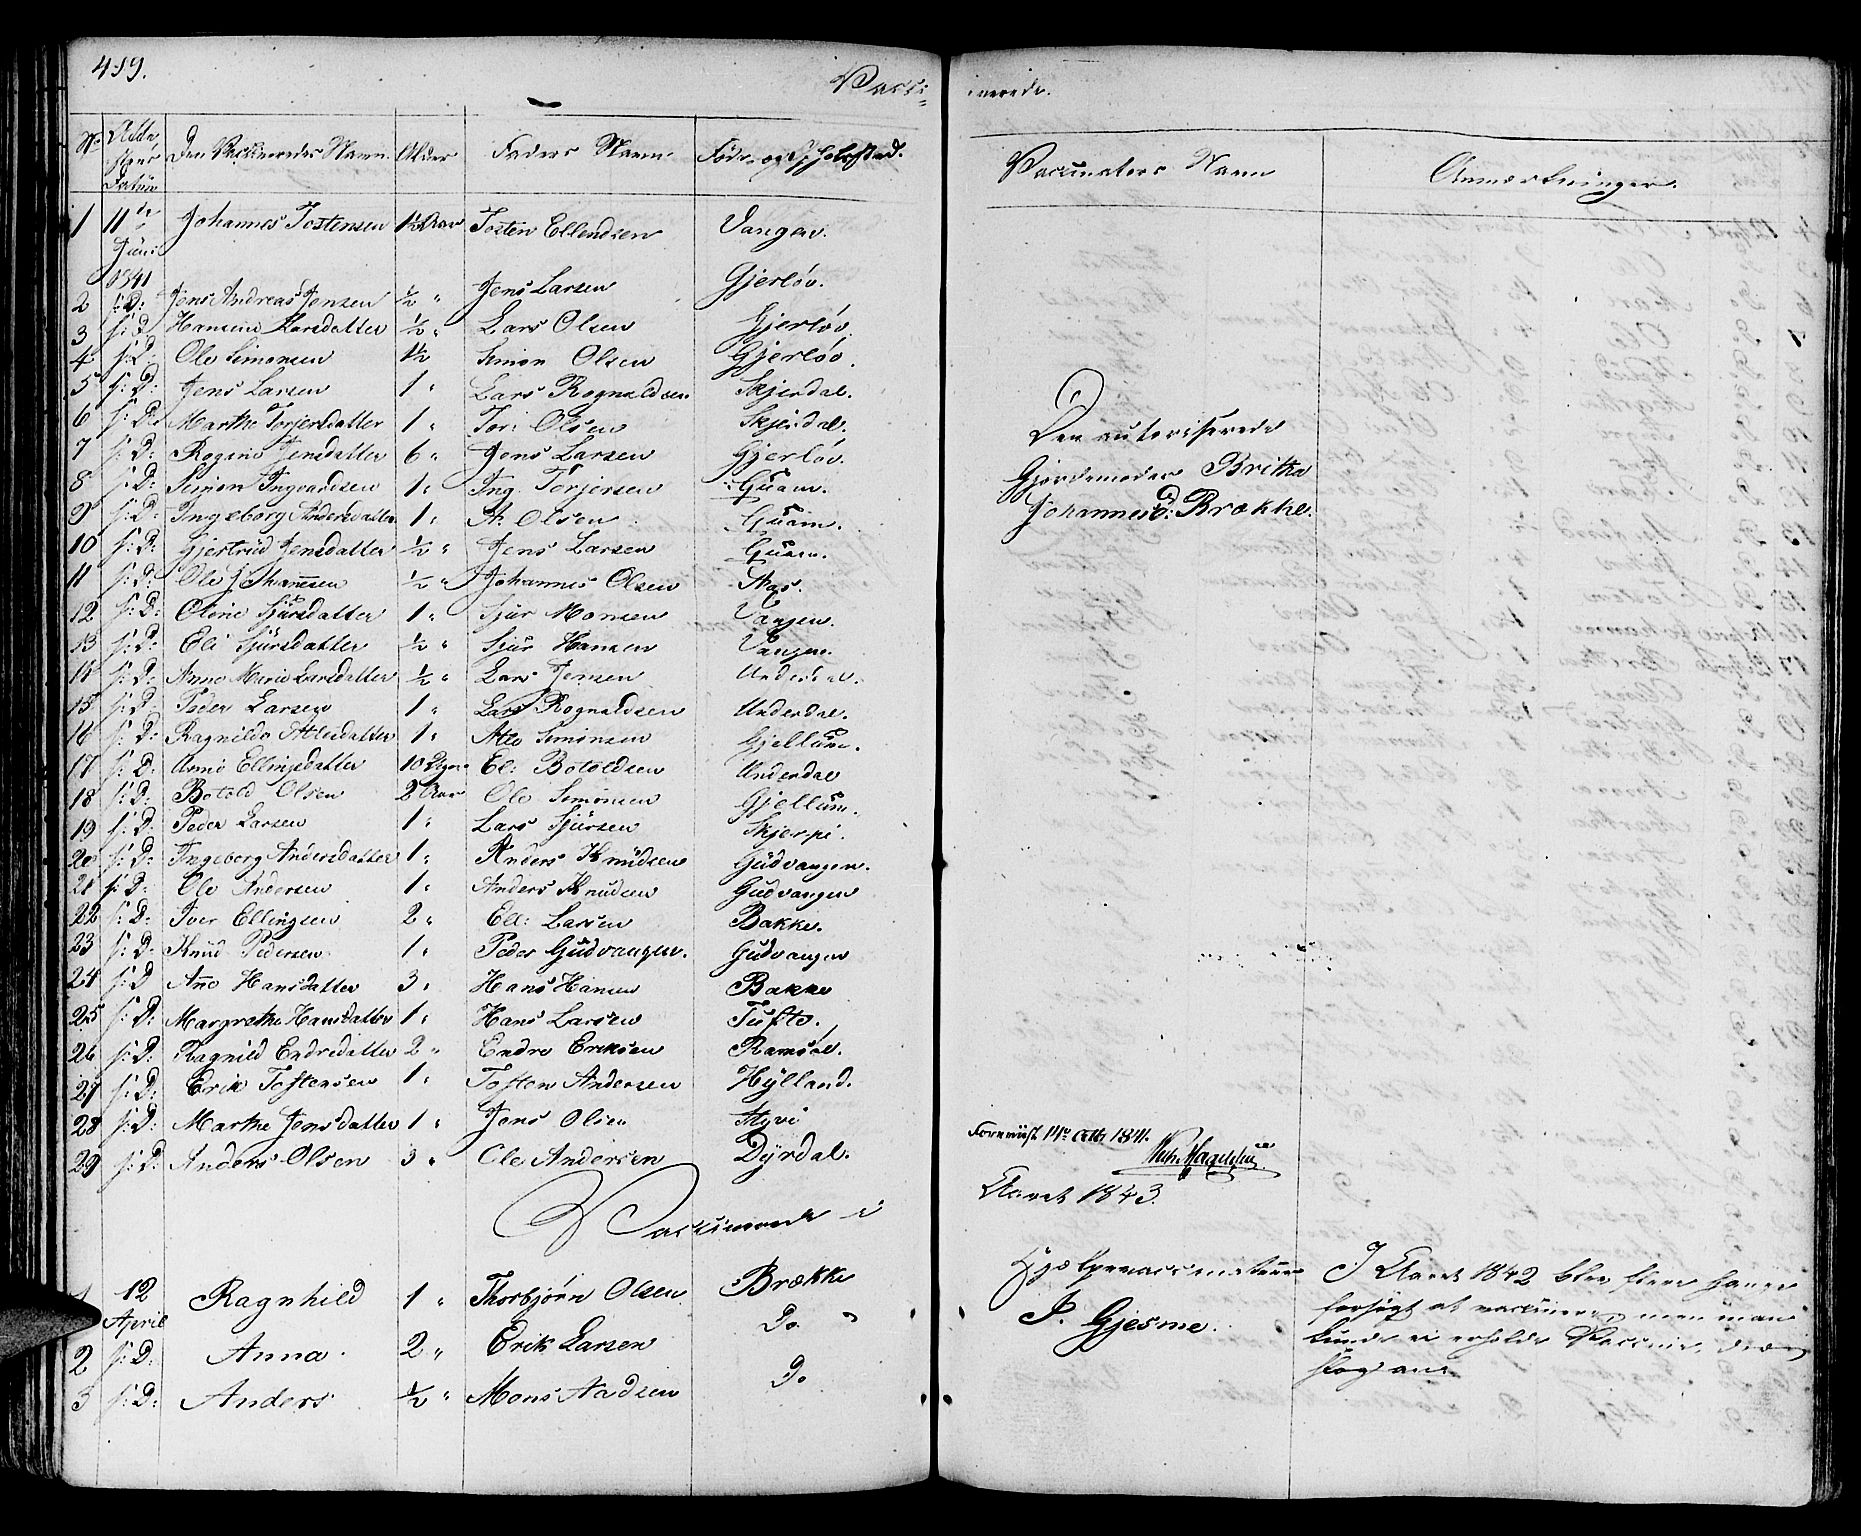 419.
Vacci=
No Attestens Datum Den Vaccineredes Navn. Alder Faders Navn. Føde- og Opholdssted.
1 11te Juni 1841 Johannes Tostensen 1½ Aar Tosten Ellendsen Vangen.
2 s: D: Jens Andreas Jensen ½ " Jens Larsen Gjerløv.
3 s: D Hansine Larsdatter ½ " Lars Olsen Gjerløv.
4 s: D: Ole Simonsen 1½ Simon Olsen Gjerløv.
5 s: D: Jens Larsen 1 " Lars Rognaldsen Skjerdal.
6 s: D: Marthe Torjersdatter 1 " Tori Olsen Skjerdal.
7 s: D: Rogine Jensdatter 6 " Jens Larsen Gjerløv.
8 s: D: Simon Ingvardsen 1 " Ing. Torjersen Guam.
9 s: D: Ingeborg Andersdatter 1 " A. Olsen Guam.
10 s: D: Gjertrud Jensdatter ½ " Jens Larsen Guam.
11 s: D: Ole Johannesen ½ " Johannes Olsen
12 s: D: Oline Sjursdatter 1 " Sjur Monsen Vangen.
13 s: D: Eli Sjursdatter ½ " Sjur Hansen Vangen.
14 s: D: Anne Marie Larsdatter ½ " Lars Jensen Underdal.
15 s: D: Peder Larsen 1 " Lars Rognaldsen Underdal.
16 s: D: Ragnilde Atlesdatter 1 " Atle Simonsen Gjellum.
17 s: D: Anne Ellingsdatter 10 Uger El: Botoldsen Underdal
18 s: D: Botold Olsen 2 Aar Ole Simonsen Gjellum.
19 s: D: Peder Larsen 1 " Lars Sjursen Skjerpi.
20 s: D: Ingeborg Andersdatter 1 " Anders Knudsen Gudvangen.
21 s: D: Ole Andersen 1 " Anders Knudsen Gudvangen
22 s: D: Iver Ellingsen 2 " Ell: Larsen Bakke.
23 s: D: Knud Pedersen 1 " Peder Gudvangen. Gudvangen
24 s: D Ane Hansdatter 3 " Hans Hansen Bakke
25 s: D: Margrethe Hansdatter 1 " Hans Larsen Tufte.
26 s: D: Ragnild Endredatter 2 " Endre Eriksen Ramsøe.
27 s: D: Erik Tostensen 1 " Tosten Andersen Hylland.
28 s: D: Marthe Jensdatter 1 " Jens Olsen Styvi
29 s: D: Anders Olsen 3 " Ole Andersen Dyrdal.
Vaccinerede i
1 12 April Ragnhild 1 " Thorbjørn Olsen Brække
2 s: D: Anna 2 " Erik Larsen Do "
3 s: D: Anders ½ " Mons Aadsen Do
inerede.
Vaccinators Navn Anmærkninger.
Den autoriserede
Gjordemoder Britha
Johannesd: Brække.
Foreviist 14de Octbr 1841.
Aaret 1843.
Hjelpevaccinateur
J. Gjesme.
I Aaret 1842 blev flere Gange
forsøgt at vaccinere, men man
kunde ei erholde Vaccine, der
slog an.